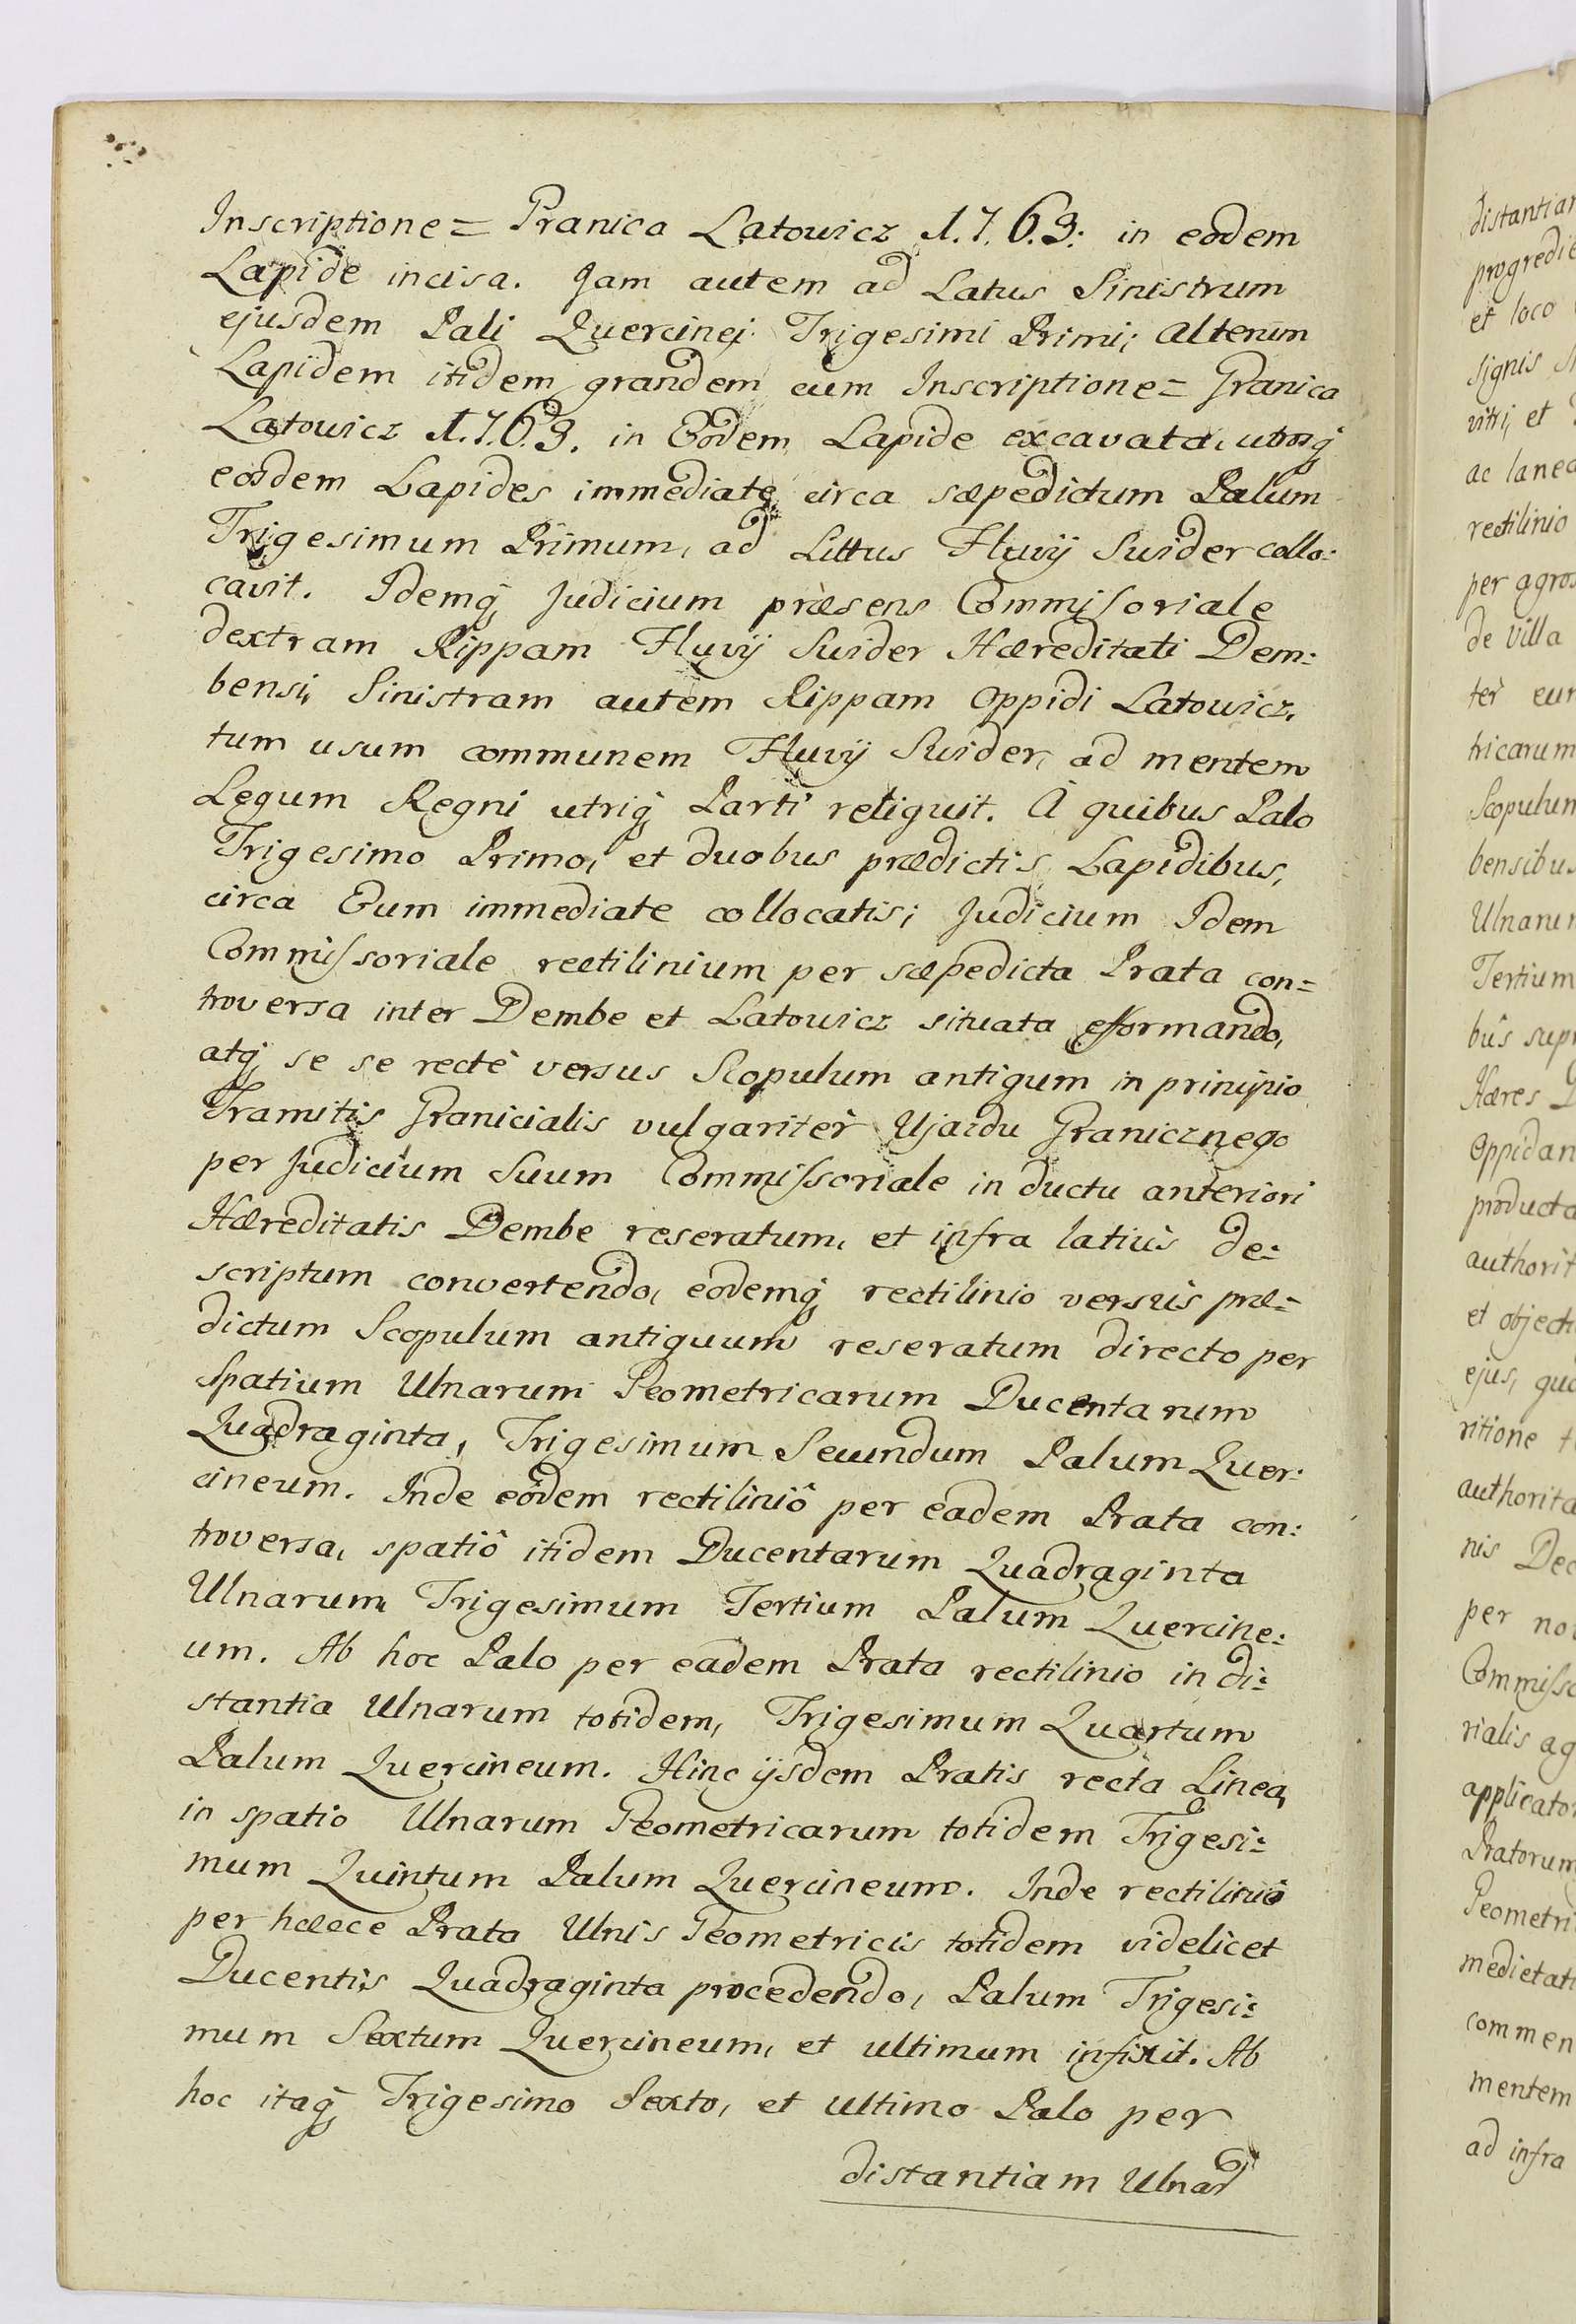 Inscriptione = Granica Latowicz 1.7.6.3: in eodem
Lapide incisa. Jam autem ad Latus Sinistrum
ejusdem Pali Quercinei Trigesimi Primi; alterum
Lapidem itidem grandem cum Inscriptione = Granica
Latowicz 1.7.6.3. in Eodem Lapide excavata, utrosq́
eosdem Lapides immediate circa sæpedictum Palum
Trigesimum Primum, ad Littus Fluvij Swider collo:
cavit. Idemq́ Judicium præsens Commissoriale
dextram Rippam Fluvij Swider Hæreditati Dem:
bensi, Sinistram autem Rippam Oppidi Latowicz,
tum usum communem Fluvij Swider, ad mentem
Legum Regni utriq́ Parti reliquit. A quibus Palo
Trigesimo Primo, et duobus prædictis Lapidibus,
circa Eum immediate collocatis; Judicium Idem
Commissoriale rectilinium per sæpedicta Prata con=
troversa inter Dembe et Latowicz situata efformando,
atq́ se se rectè versus Scopulum antiqum in principio
Tramitis Granicialis vulgariter Ujazdu Granicznego
per Judicium Suum Commissoriale in ductu anteriori
Hæreditatis Dembe reseratum, et infra latius de:
scriptum convertendo, eodemq́ rectilinio versus præ=
dictum Scopulum antiquum reseratum directo per
Spatium Ulnarum Geometricarum Ducentarum
Quadraginta, Trigesimum Secundum Palum Quer:
cineum. Inde eodem rectiliniô per eadem Prata con:
troversa, spatiô itidem Ducentarum Quadraginta
Ulnarum Trigesimum Tertium Palum Quercine:
um. Ab hoc Palo per eadem Prata rectilinio in di:
stantia Ulnarum totidem, Trigesimum Quartum
Palum Quercineum. Hinc ijsdem Pratis recta Linea,
in spatio Ulnarum Geometricarum totidem Trigesi:
mum Quintum Palum Quercineum. Inde rectilinio
per hæcce Prata Ulnis Geometricis totidem videlicet
Ducentis Quadraginta procedendo, Palum Trigesi:
mum Sextum Quercineum, et ultimum infixit. Ab
hoc itaq́ Trigesimo Sexto, et ultimo Palo per
distantiam Ulnar
distantiam
progredie
et loco
signis
vitri, et
ac lanea
rectilinio
per agros
de villa
ter eun
tricarum
Scopulum
bensibus
Ulnarum
Tertium
bûs supr
Hæres D
Oppidan
producta
authorit
et objecti
ejus, quo
ritione t
authorita
nis Dec
per no
Commisso
rialis ag
applicator
Pratorum
Geometri
medietati
commen
mentem
ad infra